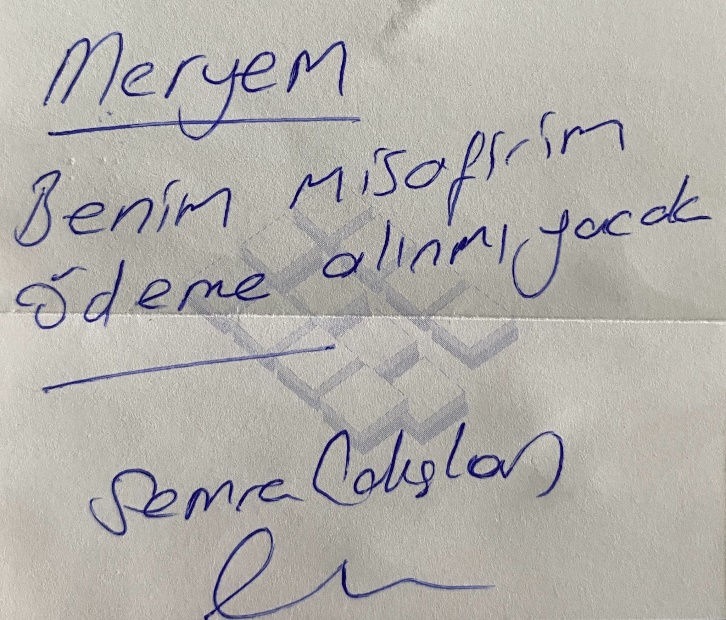 Meryem
Benim misafirim
ödeme alınmıyacak
Semra